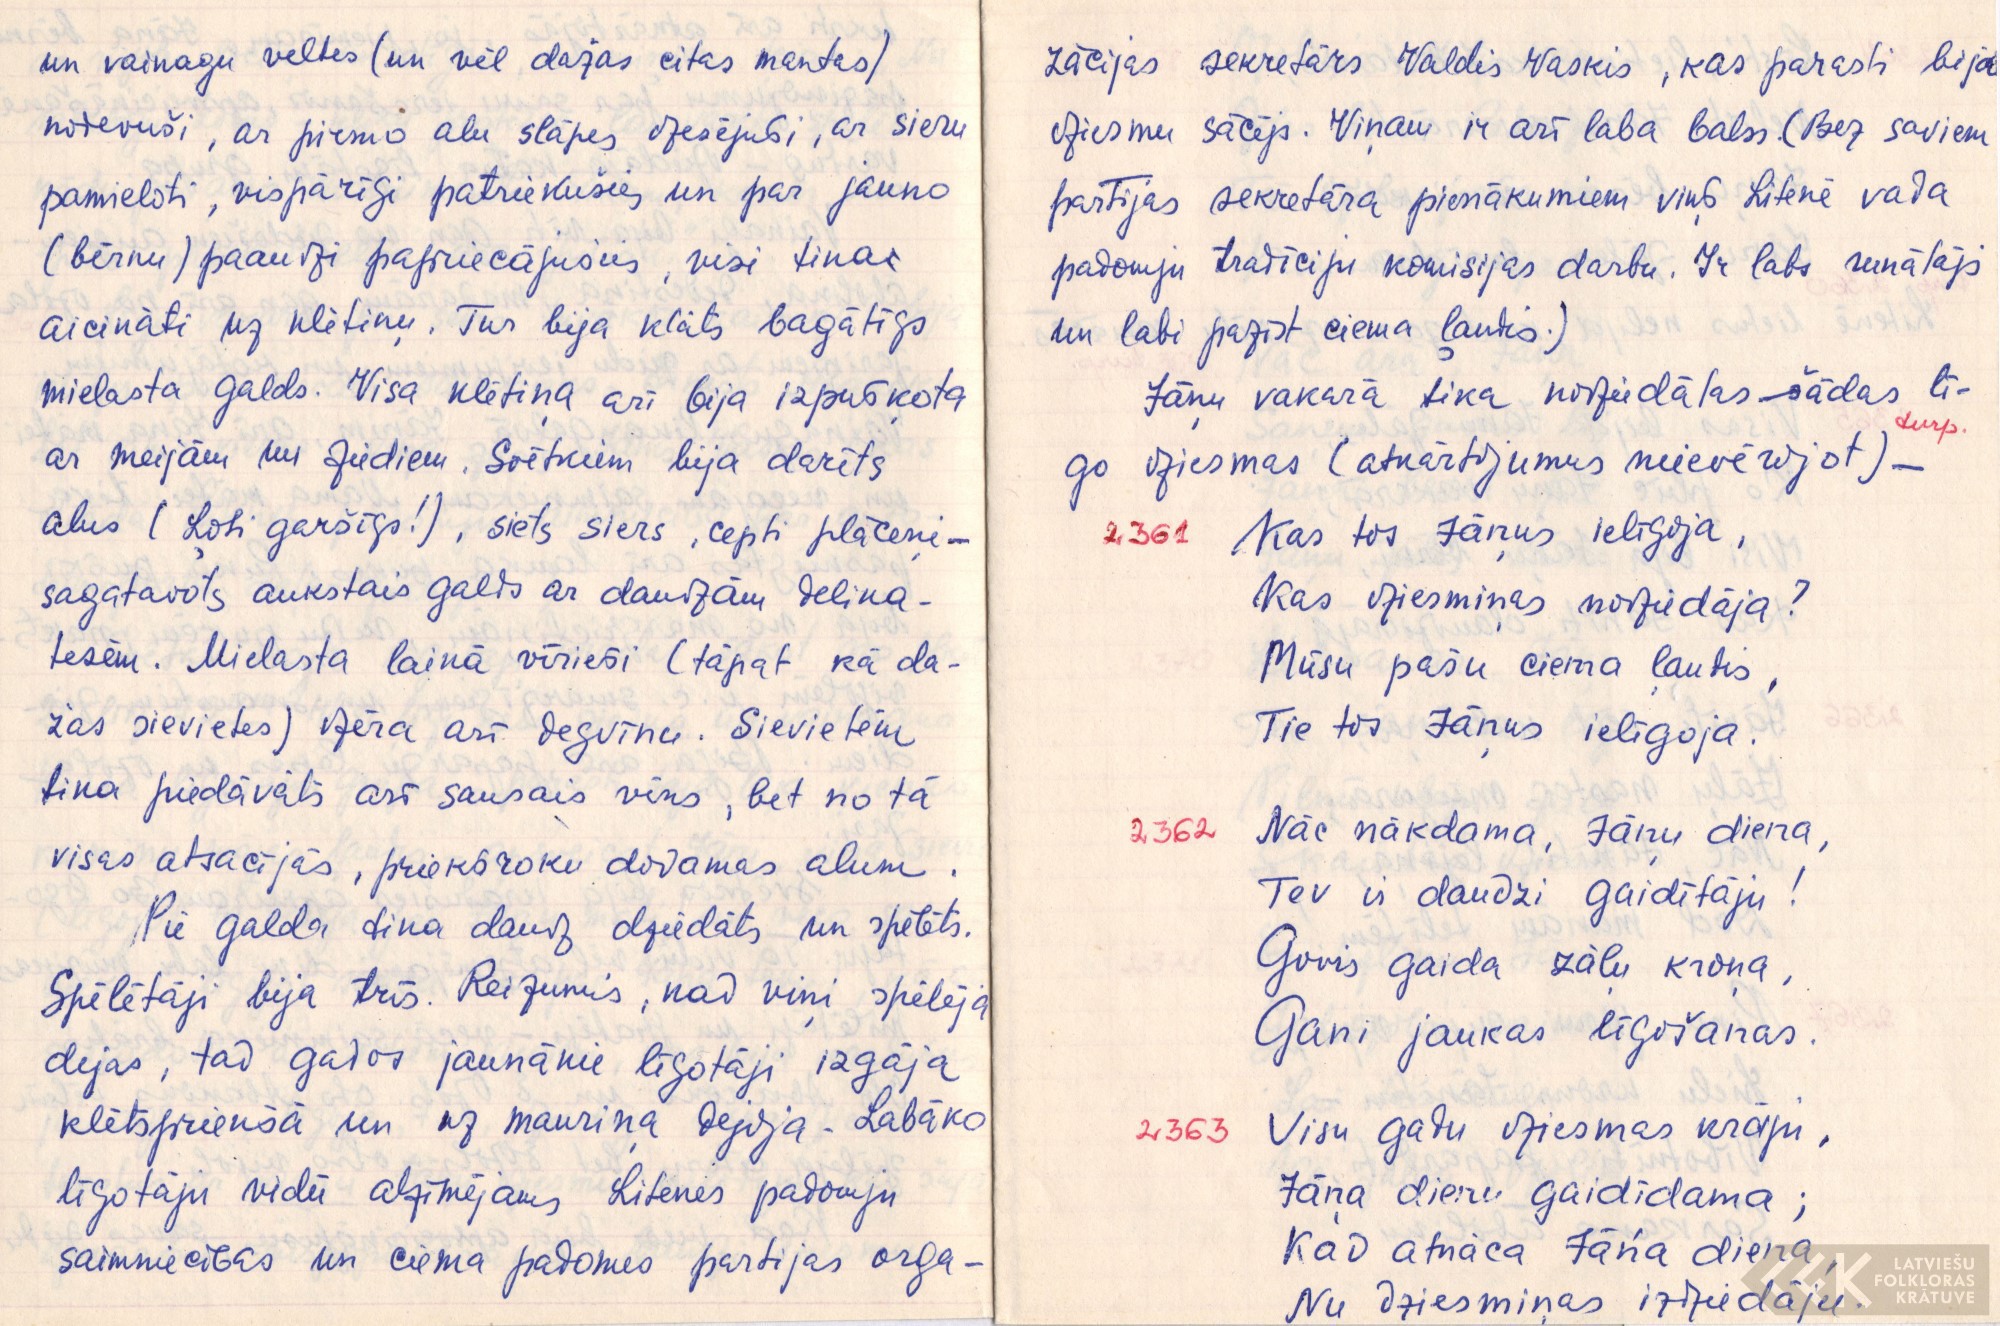 un vainagu veltes (un vēl dažas citas mantas)
nodevuši, ar pirmo alu slāpes dzesējuši, ar sieru
pamieloti, vispārīgi patriekušies un par jauno
(bērnu) paaudzi papriecājušies, visi tika
aicināti uz klētiņu. Tur bija klāts bagātīgs
mielasta galds. Visa klētiņa arī bija izpuškota
ar meijām un ziediem. Svētkiem bija darīts
alus (Ļoti garšīgs!), siets siers, cepti plāceņi –
sagatavots aukstais galds ar daudzām delika-
tesēm. Mielasta laikā vīrieši (tāpat kā da-
žas sievietes) dzēra arī degvīnu. Sievietēm
tika piedāvāts arī sausais vīns, bet no tā
visas atsacījās, priekšroku dodamas alum.
Pie galda tika daudz dziedāts un spēlēts.
Spēlētāji bija trīs. Reizumis, kad viņi spēlēja
dejas, tad gados jaunākie līgotāji izgāja
klētspriekšā un uz mauriņa dejoja. Labāko
līgotāju vidū atzīmējams Litenes padomju
saimniecības un ciema padomes partijas orga-
zācijas sekretārs Valdis Vaskis, kas parasti bija
dziesmu sācējs. Viņam ir arī laba balss. (Bez saviem
partijas sekretāra pienākumiem viņš Litenē vada
padomju tradīciju komisijas darbu. Ir labs runātājs
un labi pazīst ciema ļaudis.)
Jāņu vakarā tika nodziedātas šādas lī-
turp.
go dziesmas (atkārtojumus neievērojot) –
2361 Kas tos Jāņus ielīgoja,
Kas dziesmiņas nodziedāja?
Mūsu pašu ciema ļaudis,
Tie tos Jāņus ielīgoja.
2362 Nāc nākdama, Jāņu diena,
Tev ir daudzi gaidītāju!
Govis gaida zāļu kroņa,
Gani jaukas līgošanas.
2363 Visu gadu dziesmas krāju,
Jāņa dienu gaidīdama;
Kad atnāca Jāņa diena,
Nu dziesmiņas izdziedāju.
LATVIEŠU
FOLKLORAS
KRĀTUVE